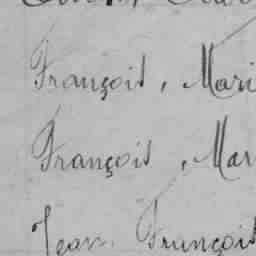 François, Mari
François, Mar
Jean François